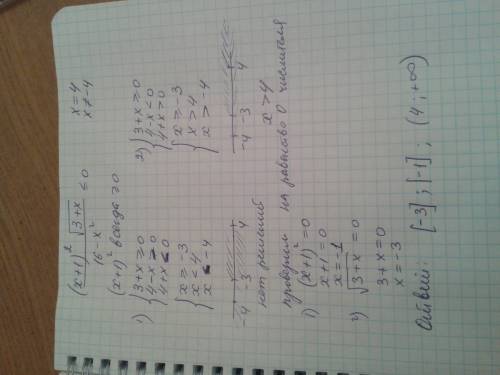 (x+1)² √3+x / 16-x² ≤ 0
x=4
x≠-4
(x+1)² всегда >0
1) { 3+x ≥0
4-x >0
4+x <0
{ x ≥ -3
x < 4
x < -4
-4 -3 4
нет решений
2) { 3+x ≥0
4-x <0
4+x >0
{ x ≥ -3
x > 4
x > -4
-4 -3 4
x > 4
проверим на равенство 0 числителя
1) (x+1)² =0
x+1 = 0
x = -1
2) √3+x = 0
3+x = 0
x = -3
Ответ: [-3] ; [-1] ; (4 ; +∞)